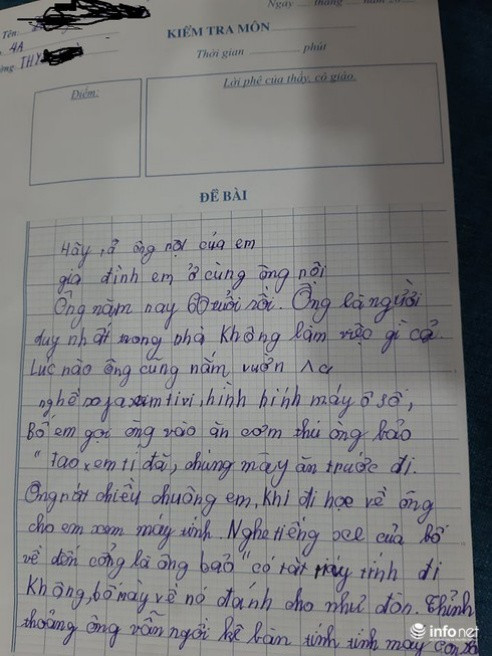 Ngày tháng năm 20
Tên
KIỂM TRA MÔN
4A
Thời gian phút
ờng THY
Điểm:
Lời phê của thầy, cô giáo.
ĐỀ BÀI
Hãy tả ông nội của em
gia đình em ở cùng ông nội
Ông năm nay 60 tuổi rồi. Ông là người
duy nhất trong nhà Không làm việc gì cả.
Lúc nào ông cũng nằm vườn
nghế xem tivi, hình hình máy ô sô,
Bố em gọi ông vào ăn cơm thì ông bảo
"Tao xem tí đã, chúng mày ăn trước đi.
Ông rất chiều chuông em, Khi đi học về ông
cho em xem máy tính. Nghe tiếng xe của bố
về đến cổng là ông bảo "có tắt máy tính đi
Không, bố mày về nó đánh cho như đòn. Thỉnh
thoảng ông vẫn ngồi kế bàn tính tính máy con số
infonet